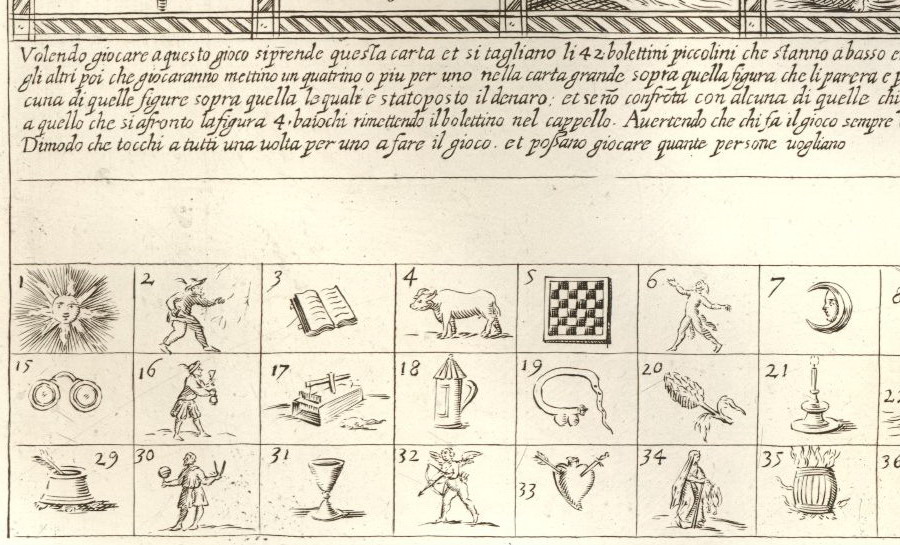 Volendo giocare a questo gioco si prende questa carta et si tagliano li 42 bolettini piccolini che stanno abasso e
gli altri poi che giocaranno mettino un quatrino o piu per uno nella carta grande sopra quella figura che li parera e p
cuna di quelle figure sopra quella le quali e stato posto il denaro; et se nō confrōta con alcuna di quelle chi
a quello che si afronto la figura 4. baiochi rimettendo il bolettino nel cappello. Auertendo che chi fa il gioco sempre
Dimodo che tocchi a tutti una uolta per uno a fare il gioco. et possano giocare quante persone uogliano
1 2 3 4 5 6 7 8
15 16 17 18 19 20 21 22
29 30 31 32 33 34 35 36